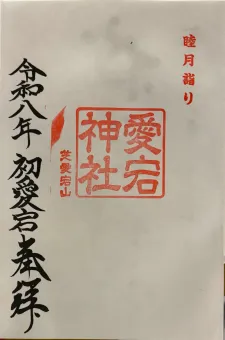 睦月詣り
愛宕
神社
芝愛宕山
令和八年初愛宕奉拝